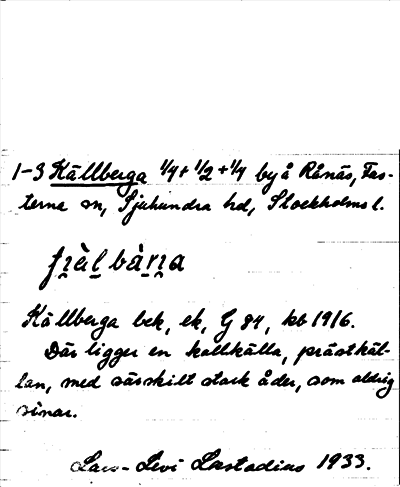 1-3 Källberga 1/4+1/2+1/4 by å Rånäs, Fas-
terna sn, Sjuhundra hd, Stockholms l.
Källberga bek, ek, G 84, kb 1916.
Där ligger en kallkälla, prästkäl-
lan, med särskilt stark åder, som aldrig
sinar.
Lars-Levi Læstadius 1933.